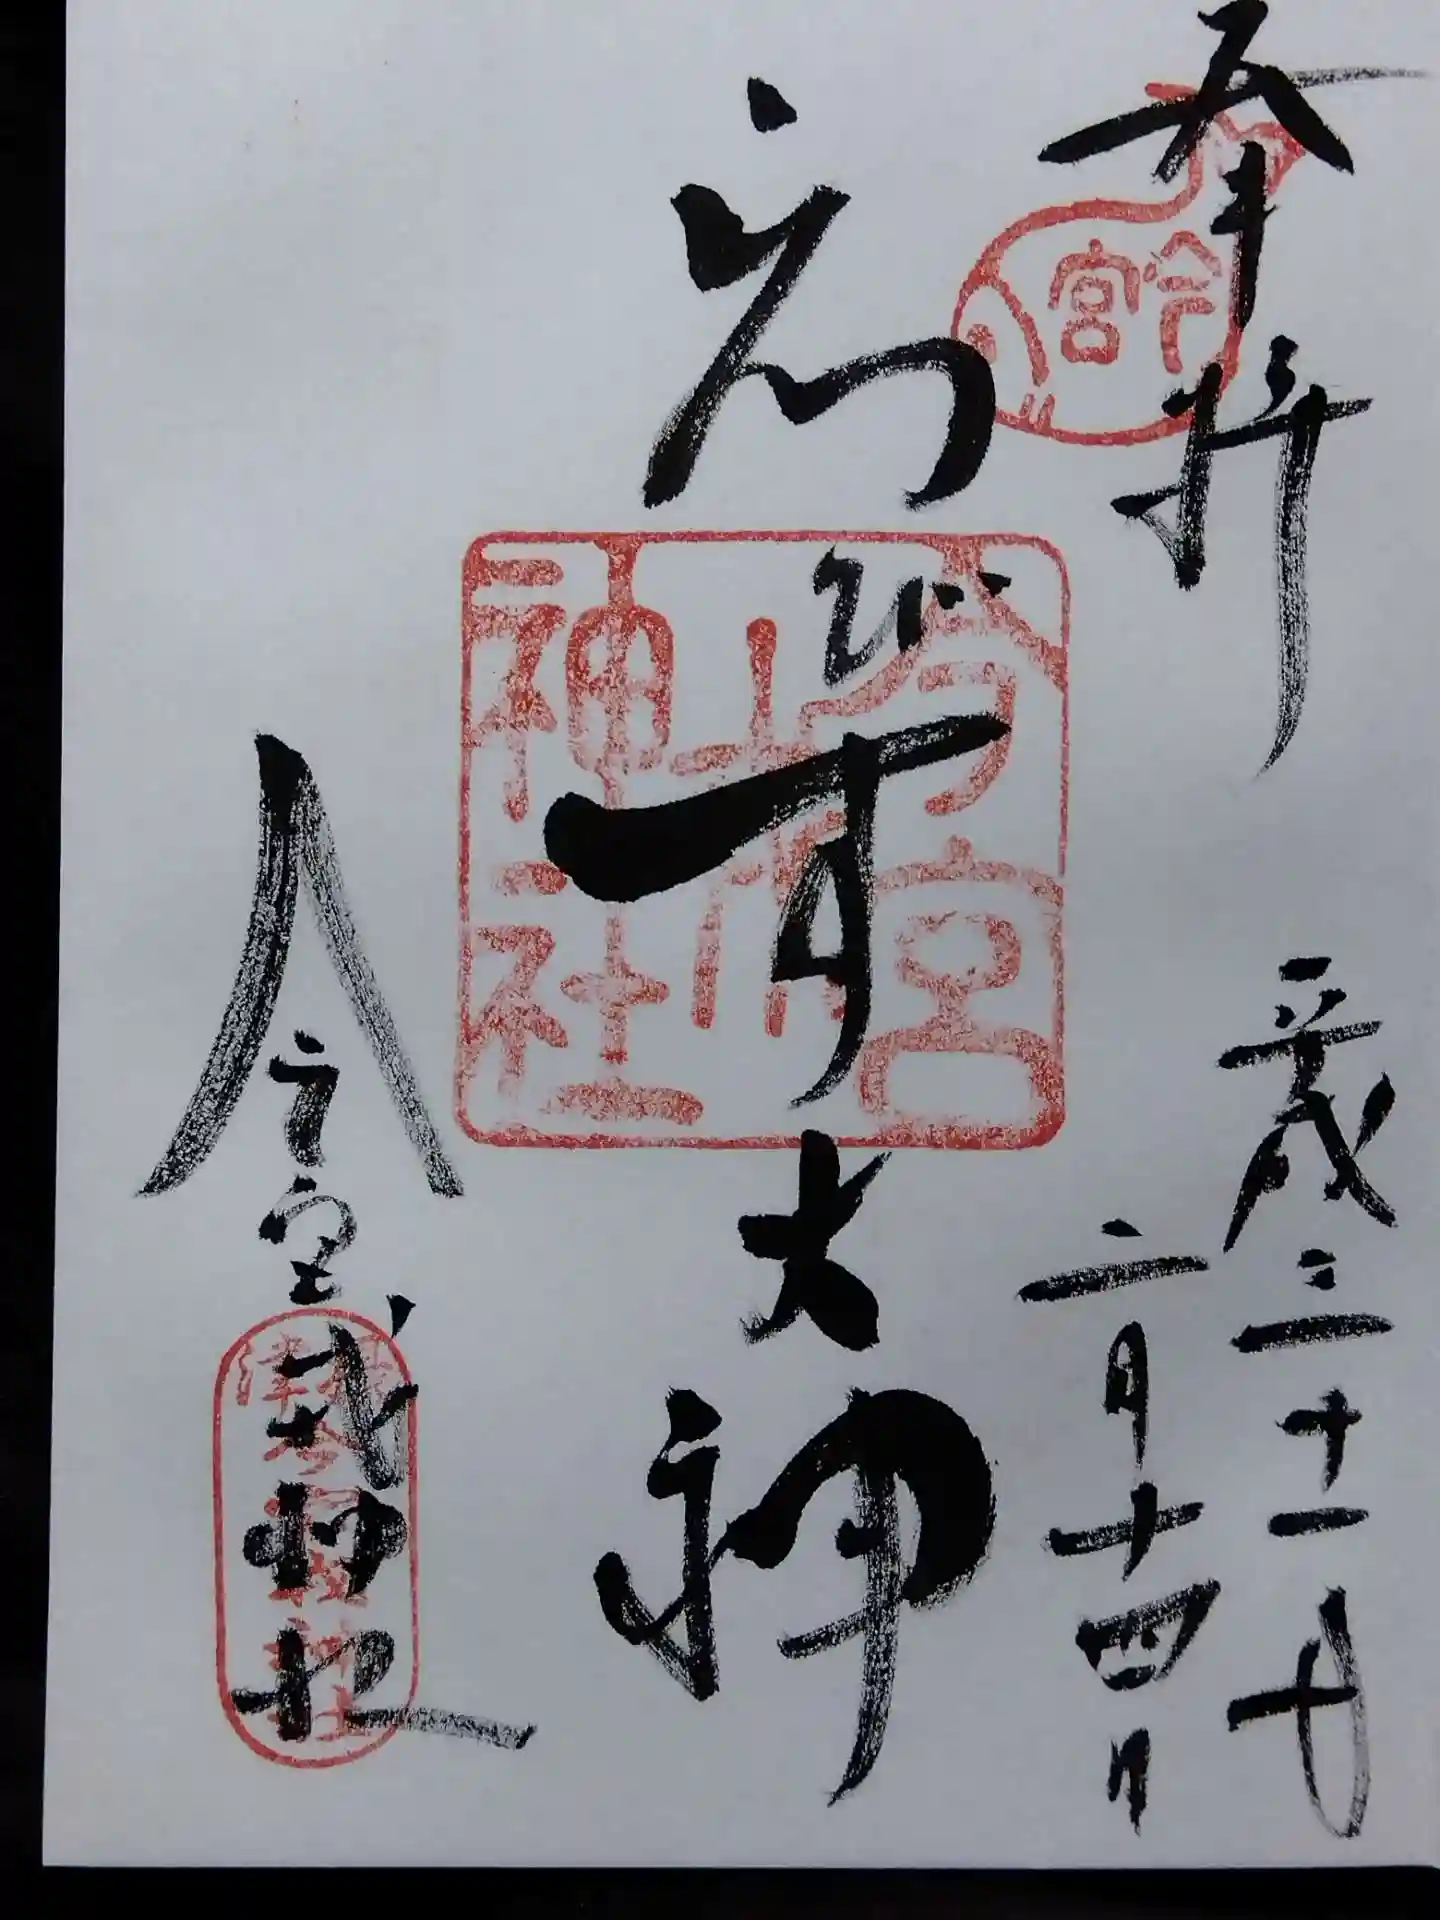 奉拝
今宮
平成三十一年
二月十四日
ゑびす大神
今宮戎神社
今宮戎神社